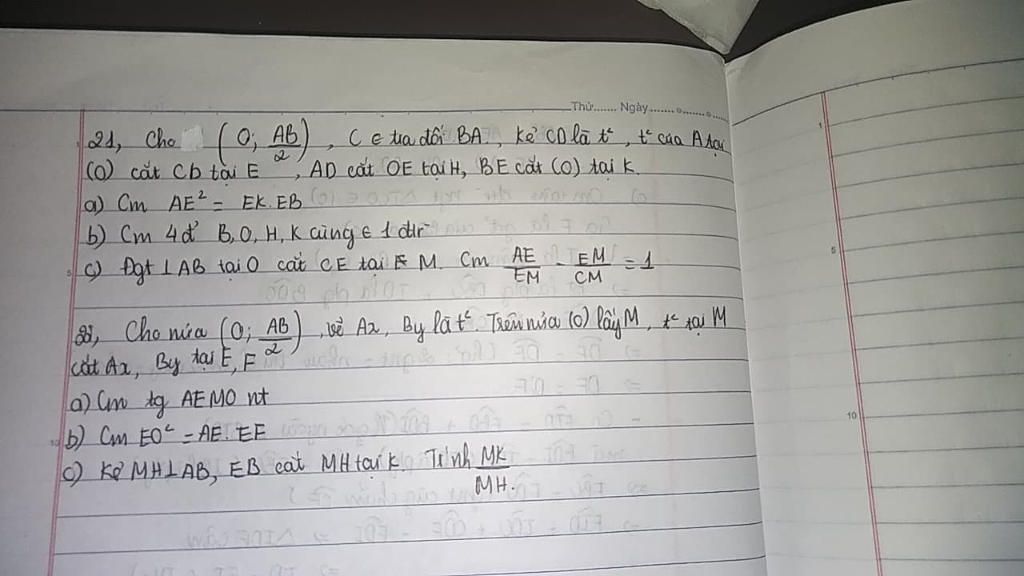 Thứ....... Ngày........
21, Cho (O; AB/2), C ∈ tia đối BA, kẻ CD là t², t² của A tại
(O) cắt CD tại E, AD cắt OE tại H, BE cắt (O) tại K.
a) Cm AE² = EK.EB
b) Cm 4đ' B, O, H, K cùng ∈ 1 đtr
c) Đgt ⊥ AB tại O cắt CE tại M. Cm AE/EM - EM/CM = 1
22, Cho nửa (O; AB/2), vẽ Ax, By là t². Trên nửa (O) lấy M, t² tại M
cắt Ax, By tại E, F
a) Cm tg AEMO nt
b) Cm EO² = AE. EF
c) Kẻ MH⊥AB, EB cắt MH tại K Tính MK/MH.
1
5
10